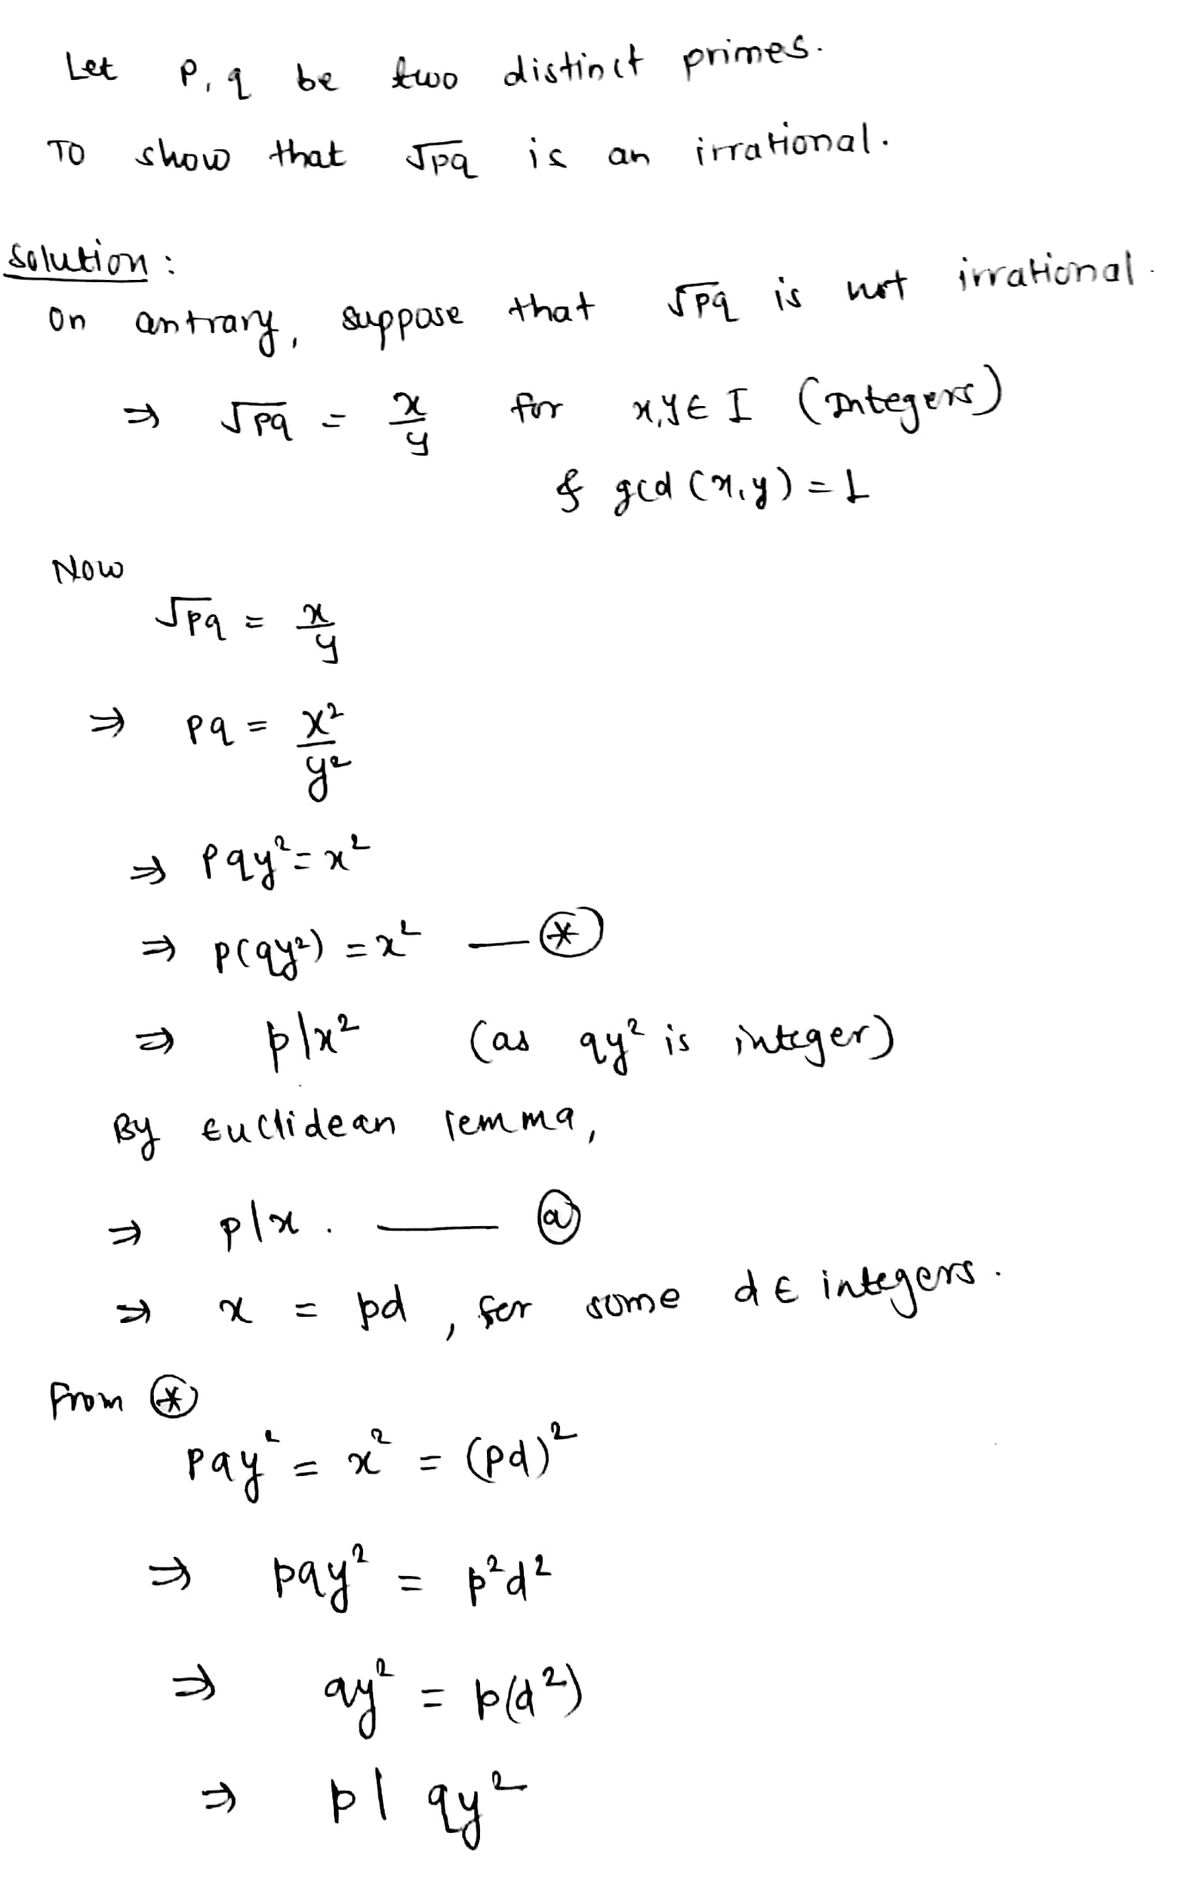 Let p, q be two distinct primes.
To show that √pq is an irrational.
Solution:
On contrary, suppose that √pq is not irrational.
⇒ √pq = x/y for x,y ∈ I (Integers)
& gcd (x,y) = 1
Now
√pq = x/y
⇒ pq = x²/y²
⇒ pqy² = x²
⇒ p(qy²) = x² — ⊛
⇒ p|x² (as qy² is integer)
By Euclidean lemma,
⇒ p|x. — ⓐ
⇒ x = pd, for some d ∈ integers.
From ⊛
pqy² = x² = (pd)²
⇒ pqy² = p²d²
⇒ qy² = p(d²)
⇒ p| qy²